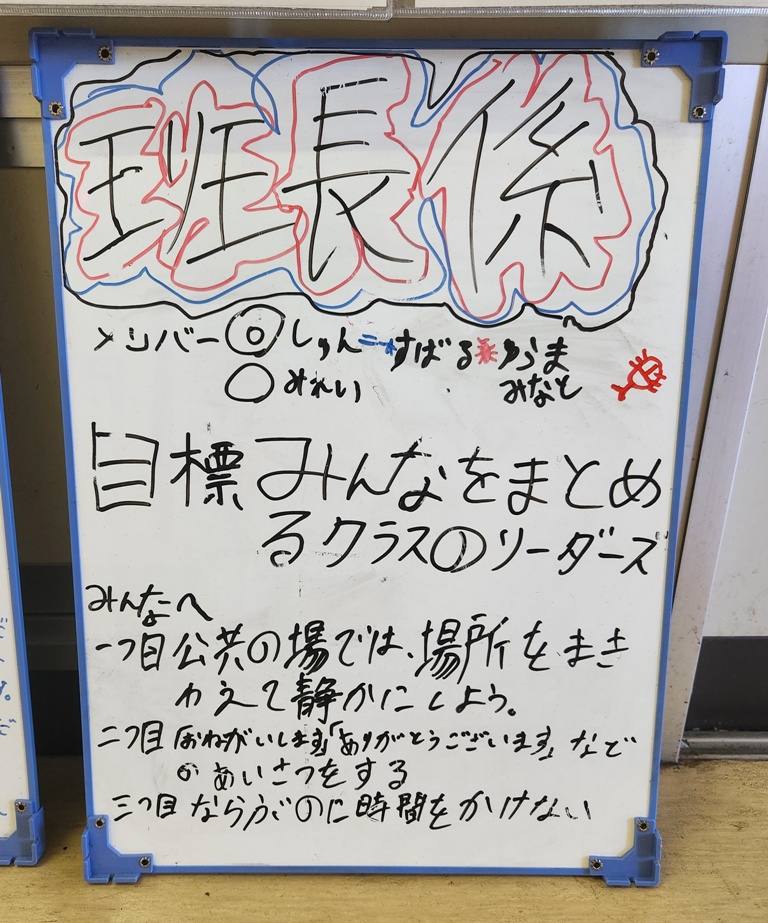 班長係
メンバー ◎しゅん すばる ゆうま
○みれい みなと
目標 みんなをまとめ
るクラスのリーダーズ
みんなへ
一つ目 公共の場では、場所をまき
わえて静かにしよう。
二つ目「おねがいします」「ありがとうございます」など
のあいさつをする
三つ目 ならぶのに時間をかけない